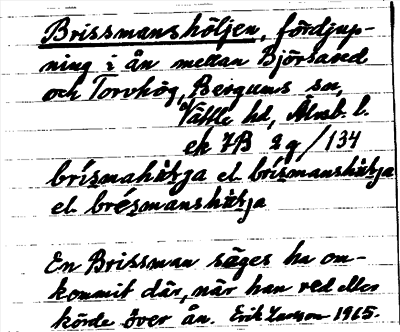 Brissmanshöljen, fördjup-
ning i ån mellan Björsared
och Torvhög, Bergums sn,
Vättle hd, Älvsb. l.
ek 7B 2g/134
brismahöl̥ja el. brismanshöl̥ja
el. brésmanshöl̥ja
En Brissman säges ha om-
kommit där, när han red eller
körde över ån. Erik Larsson 1965.